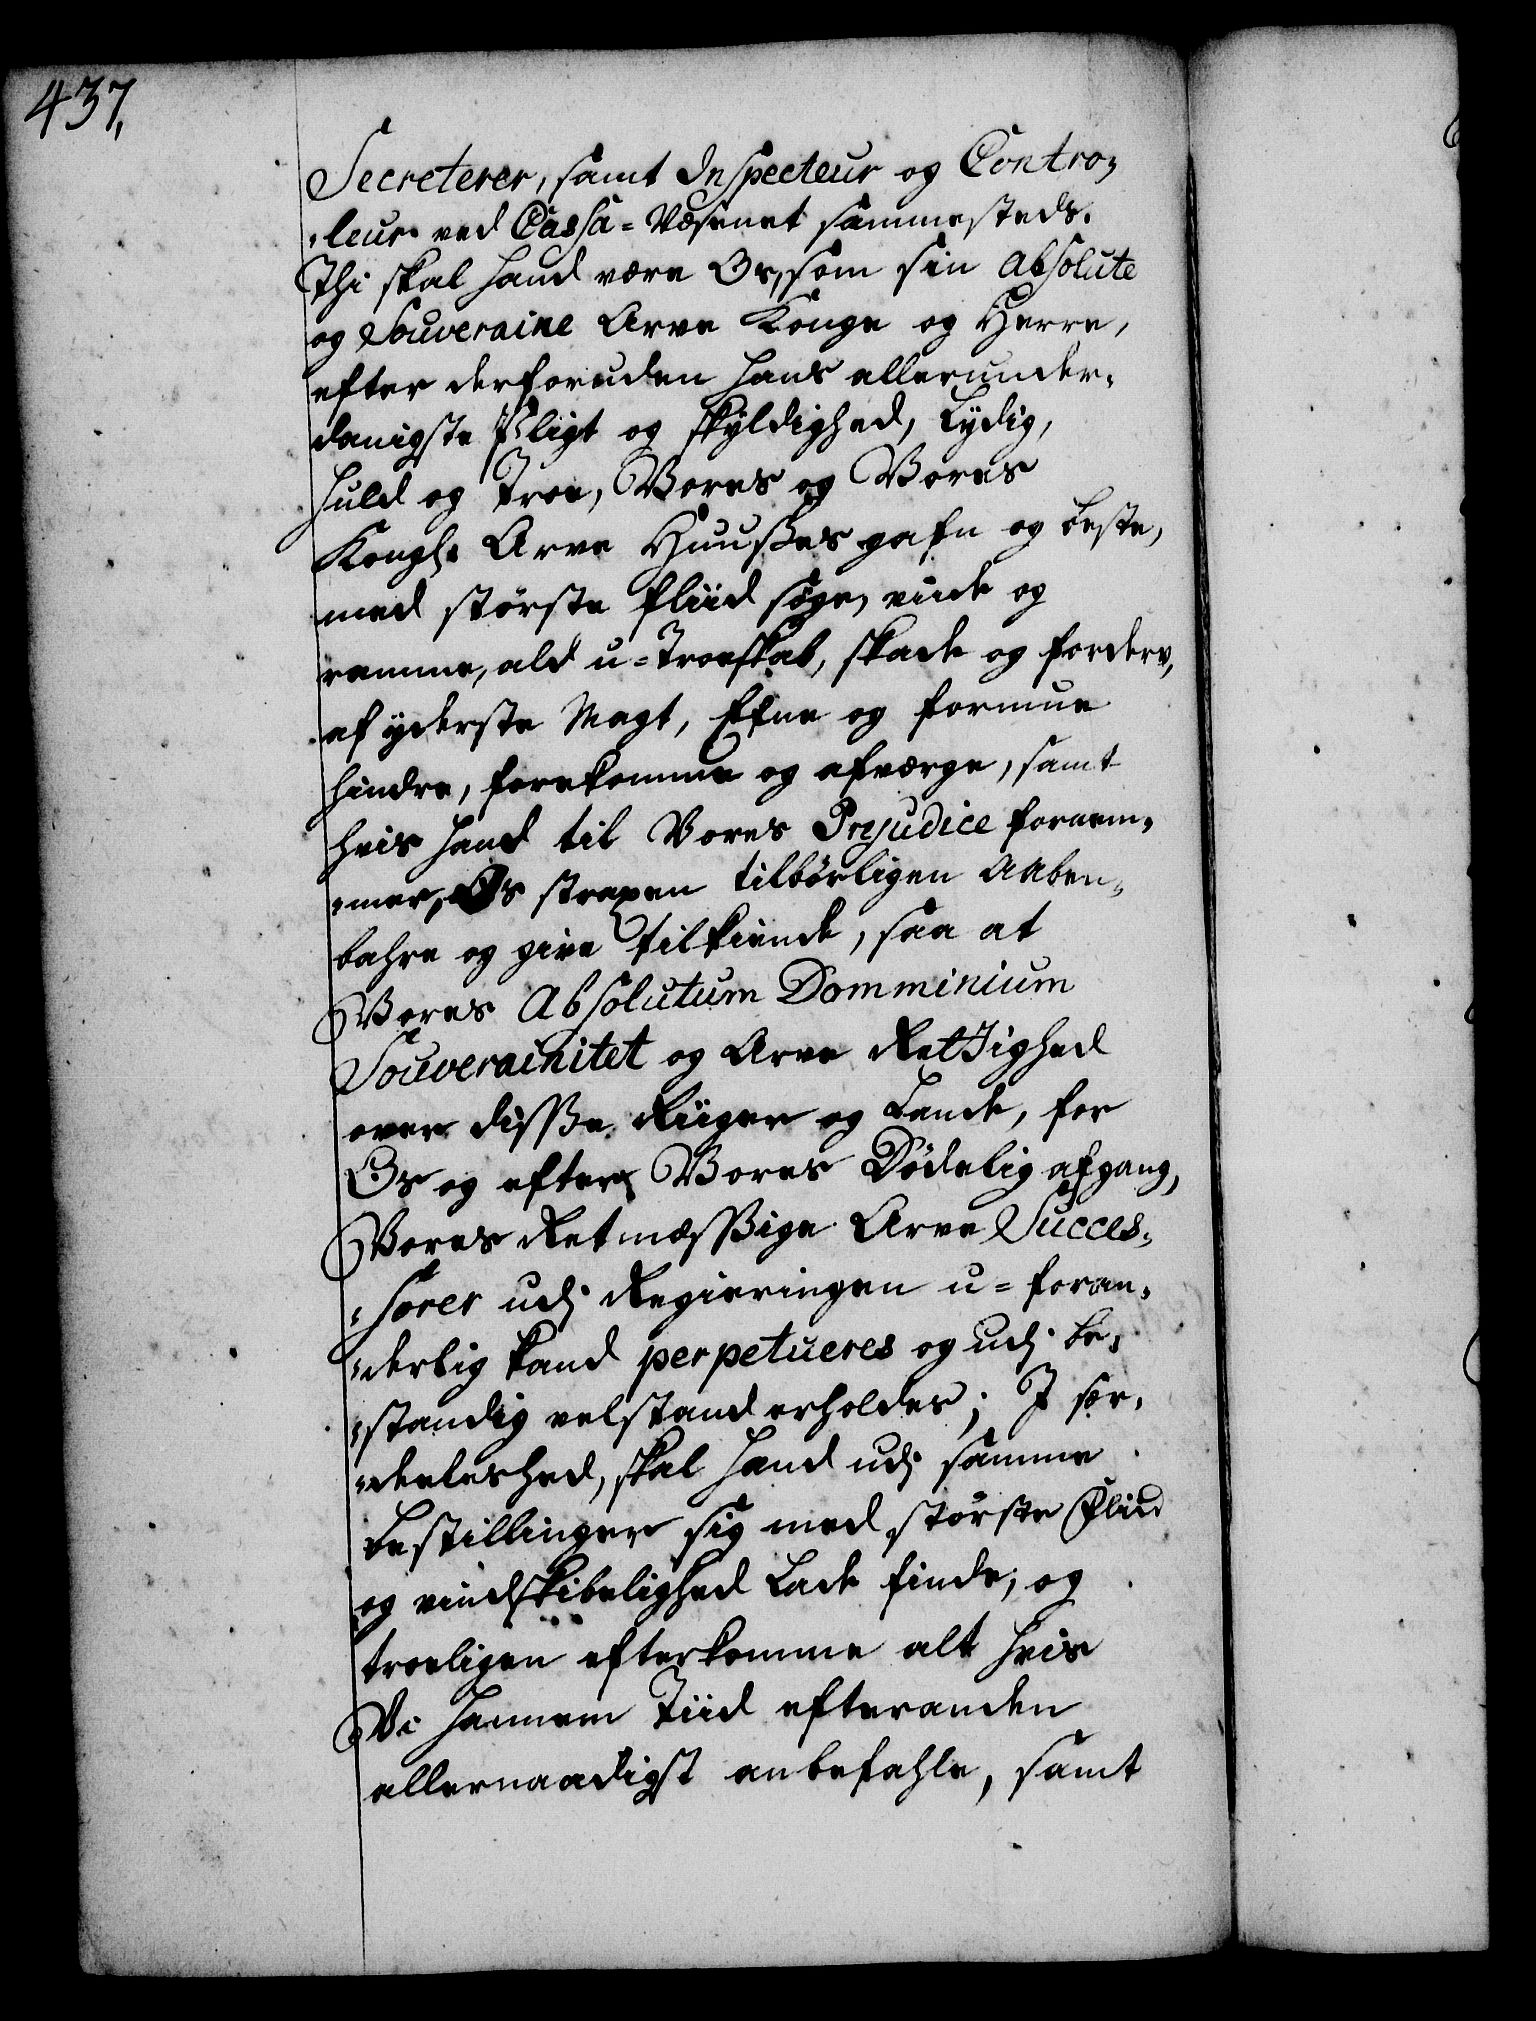 437,
Secreterer, samt Inspecteur og Contro,
,leur ved Cassa=Væsenet sammesteds.
Thi skal hand være Os, som sin absolute
og Souveraine Arve Konge og Herre,
efter derforuden hans allerunder,
danigste Pligt og skyldighed, Lydig,
huld og Troe, Vores og Vores
Kongl. Arve Huußes gafn og beste,
med største fliid søge, viide og
ramme, ald u=Troeskab, skade og forderv,
af yderste Magt, Efne og formue
hindre, forekomme og afværge, samt
hvis hand til Vores Præjudice fornem,
,mer, Os straxen tilbørligen aaben,
bahre og give tilkiende, saa at
Vores Absolutum Domminium
Souverainitet og Arve Rettighed
over disse Riiger og Lande, for
Os og efter Vores Dødelig afgang,
Vores Retmæssige Arve Succes,
,sorer udj Regieringen u=foran,
,derlig kand perpetueres og udj be,
,standig velstand erholdes; I sær,
,deeleshed, skal hand udj samme
bestillinger sig med største Fliid
og vindskibelighed Lade finde, og
troeligen efterkomme alt hvis
Vi hannem Tiid efteranden
allernaadigst anbefahle, samt